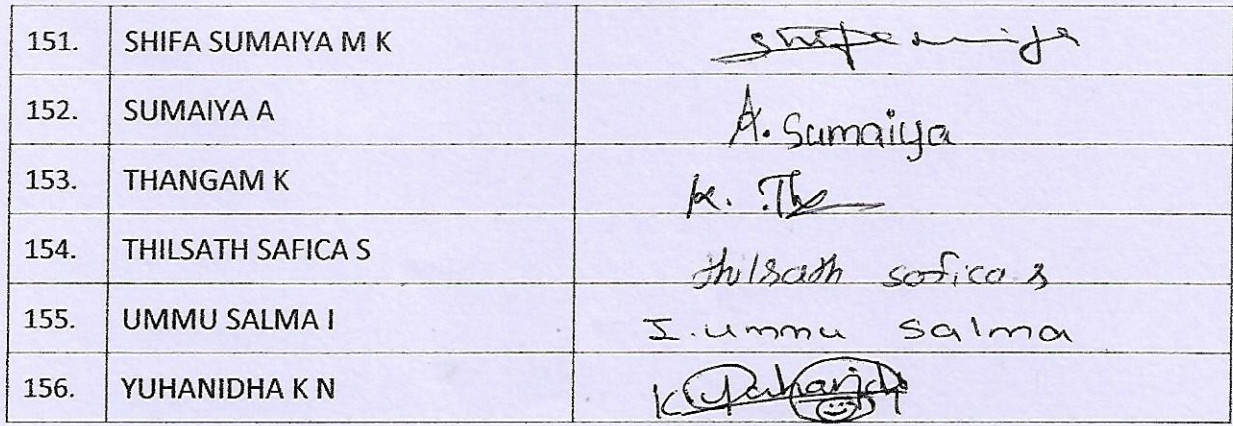 151. SHIFA SUMAIYA M K
152. SUMAIYA A A. Sumaiya
153. THANGAM K K. Th
154. THILSATH SAFICA S thilsath safica s
155. UMMU SALMA I I. ummu salma
156. YUHANIDHA K N K